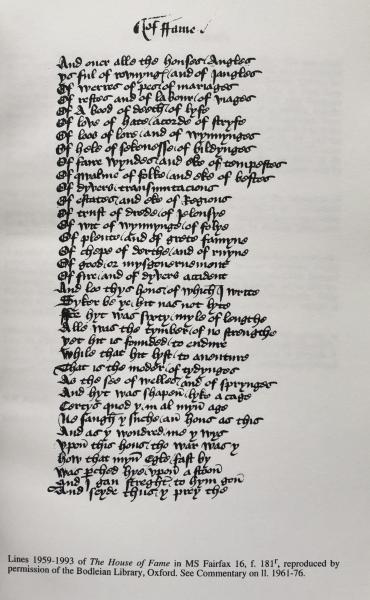 Of Fame
And ouer alle the houses Angles
ys ful of rovnynges and of Jangles
Of werres of pes of mariages
Of restes and of labour of viages
Of A bood of deeth of lyfe
Of love of hate acorde of stryfe
Of loos of lore and of wynnynges
Of hele of sekenesse of bildynges
Of faire wyndes and eke of tempestes
Of qwalme of folke and eke of bestes
Of dyvers transmutacions
Of estates and eke of Regions
Of trust of drede of Jelousye
Of wit of wynnynge of folye
Of plente and of grete famyne
Of chepe of derthe and of ruyne
Of good or mysgouernement
Of fire and of dyvers accident
And loo thys hous of which I write
Syker be ye hit nas not lyte
For hyt was sixty myle of lengthe
Alle was the tymber of no strengthe
yet hit is founded to endure
While that hit lyst to auenture
That is the moder of tydynges
As the see of welles and of sprynges
And hyt was shapen lyke a cage
Certys quod y in al myn age
Ne saugh y suche an hous as this
And as y wondred me y wys
vpon this hous tho war was y
how that myn Egle fast by
was perched hye vpon a stoon
And I gan streght to hym gon
And seyde thus y prey the
Lines 1959-1993 of The House of Fame in MS Fairfax 16, f. 181r, reproduced by
permission of the Bodleian Library, Oxford. See Commentary on ll. 1961-76.